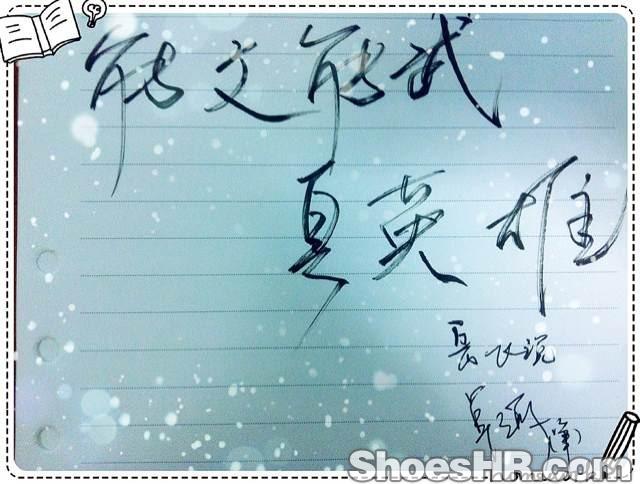 能文能武
真英雄
岳飞说
ShoesHR.com